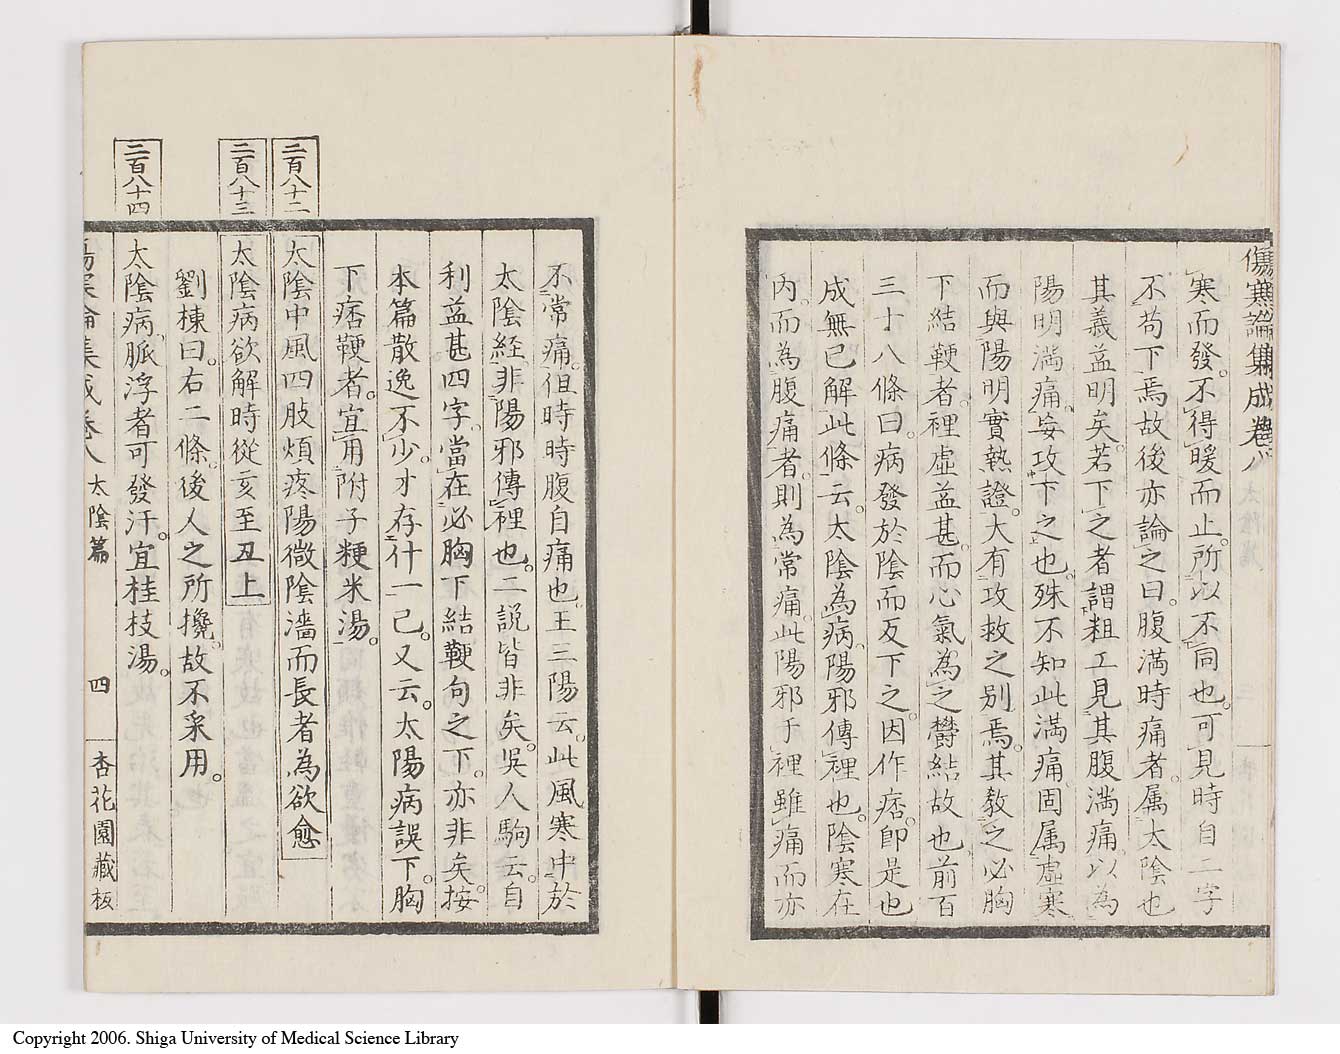 傷寒論集成卷八
寒而發。不得暖而止。所以不同也。可見時自二字
不苟下焉故後亦論之曰。腹滿時痛者。属太陰也
其義益明矣。若下之者。謂粗工見其腹満痛。以為
陽明満痛。妄攻下之也。殊不知此満痛。固属虛寒
而與陽明實熱證。大有攻救之別焉。其教之必胸
下結鞕者。裡虛益甚。而心氣為之欝結故也。前百
三十八條曰。病發於陰而反下之。因作痞。即是也
成無已解此條云。太陰為病。陽邪傳裡也。陰寒在
內。而為腹痛者。則為常痛。此陽邪于裡雖痛而亦
不常痛。但時時腹自痛也。王三陽云。此風寒中於
太陰経。非陽邪傳裡也。二説皆非矣。吳人駒云。自
利益甚四字。當在必胸下結鞕句之下。亦非矣。按
本篇散逸不少。才存什一己。又云。太陽病誤下。胸
下痞鞕者。宜用附子粳米湯。
二百八十二
太陰中風四肢煩疼陽微陰濇而長者為欲愈
二百八十三
太陰病欲解時從亥至丑上
劉棟曰。右二條。後人之所攙。故不采用。
二百八十四
太陰病。脈浮者可發汗。宜桂枝湯。
傷寒論集成卷八 太陰篇 四 杏花園藏板
Copyright 2006. Shiga University of Medical Science Library